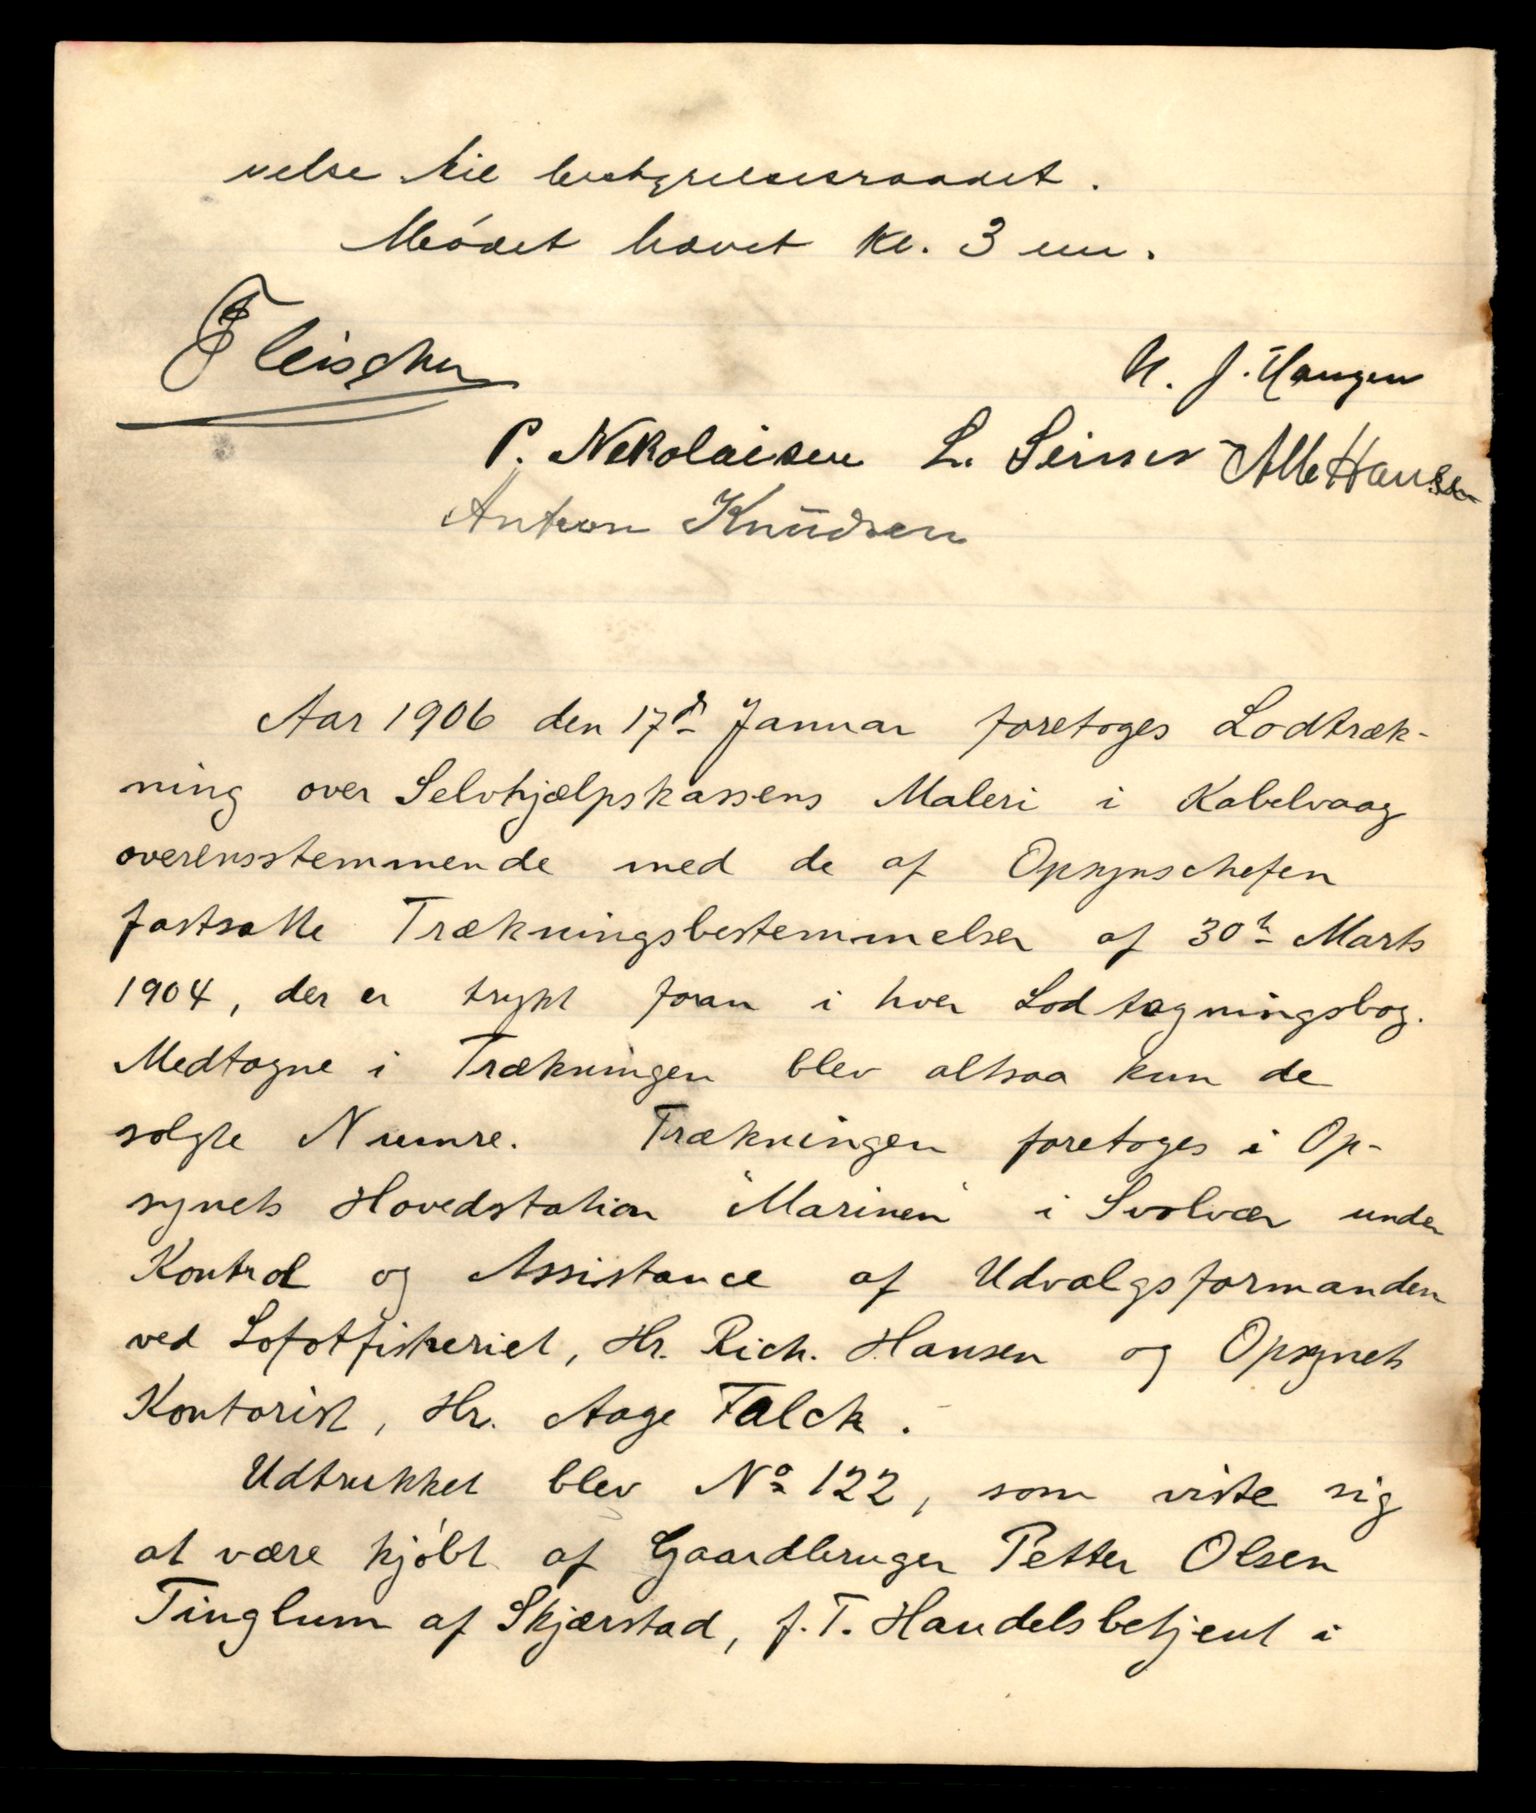 velse til bestyrelsesraadet.
Mødet hævet kl. 3 em.
Fleischer
N. J. Haugen
P. Nekolaisen L. Hansen
Anton Knudsen
Aar 1906 den 17d Januar foretoges Lodtræk-
ning over Selvhjælpskassens Maleri i Kabelvaag
overensstemmende med de af Opsynschefen
fastsatte Trækningsbestemmelser af 30te Marts
1904, der er trykt foran i hver Lodtegningsbog.
Medtagne i Trækningen blev altsaa kun de
solgte Numre. Trækningen foretoges i Op-
synets Hovedstation "Marinen" i Svolvær under
Kontrol og Assistance af Udvalgsformanden
ved Lofotfiskeriet, Hr. Rich. Hansen og Opsynets
Kontorist, Hr. Aage Falck.
Udtrukket blev No 122, som viste sig
at være kjøbt af Gaardbruger Petter Olsen
Tinglum af Skjærstad, f. T. Handelsbetjent i